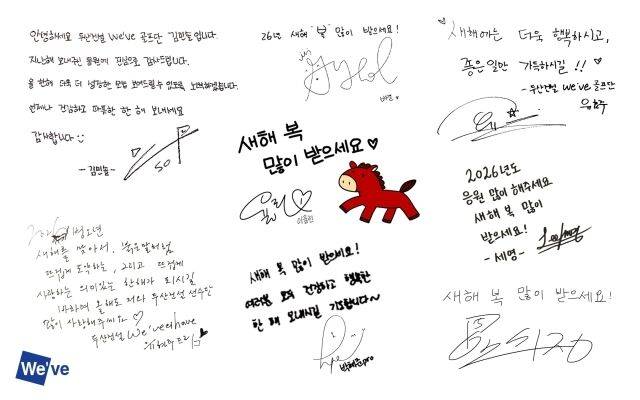 안녕하세요 두산건설 We've 골프단 김민솔입니다
지난해 보내주신 응원에 진심으로 감사드립니다.
올 한해 더욱 더 성장한 모습 보여드릴 수 있도록 노력하겠습니다.
언제나 건강하고 따뜻한 한 해 보내세요
감사합니다
-김민솔-
26년 새해 "복" 많이 받으세요!
새해 복
많이 받으세요 ♡
이율린
새해에는 더욱 행복하시고,
좋은일만 가득하시길!! ♡
-두산건설 We've 골프단
유현주
2026년도
응원 많이 해주세요
새해 복 많이
받으세요!
-세명-
새해를 맞아서, 붉은말처럼
뜨겁게 도약하는, 그리고 뜨겁게
사랑하는 의미있는 한해가 되시길
바라며 올해도 저와 두산건설 선수단
많이 사랑해주세요 ♡
두산건설 We've
새해 복 많이 받으세요!
여러분 모두 건강하고 행복한
한 해 보내시길 기도합니다~
박혜준pro
새해 복 많이 받으세요!
We've